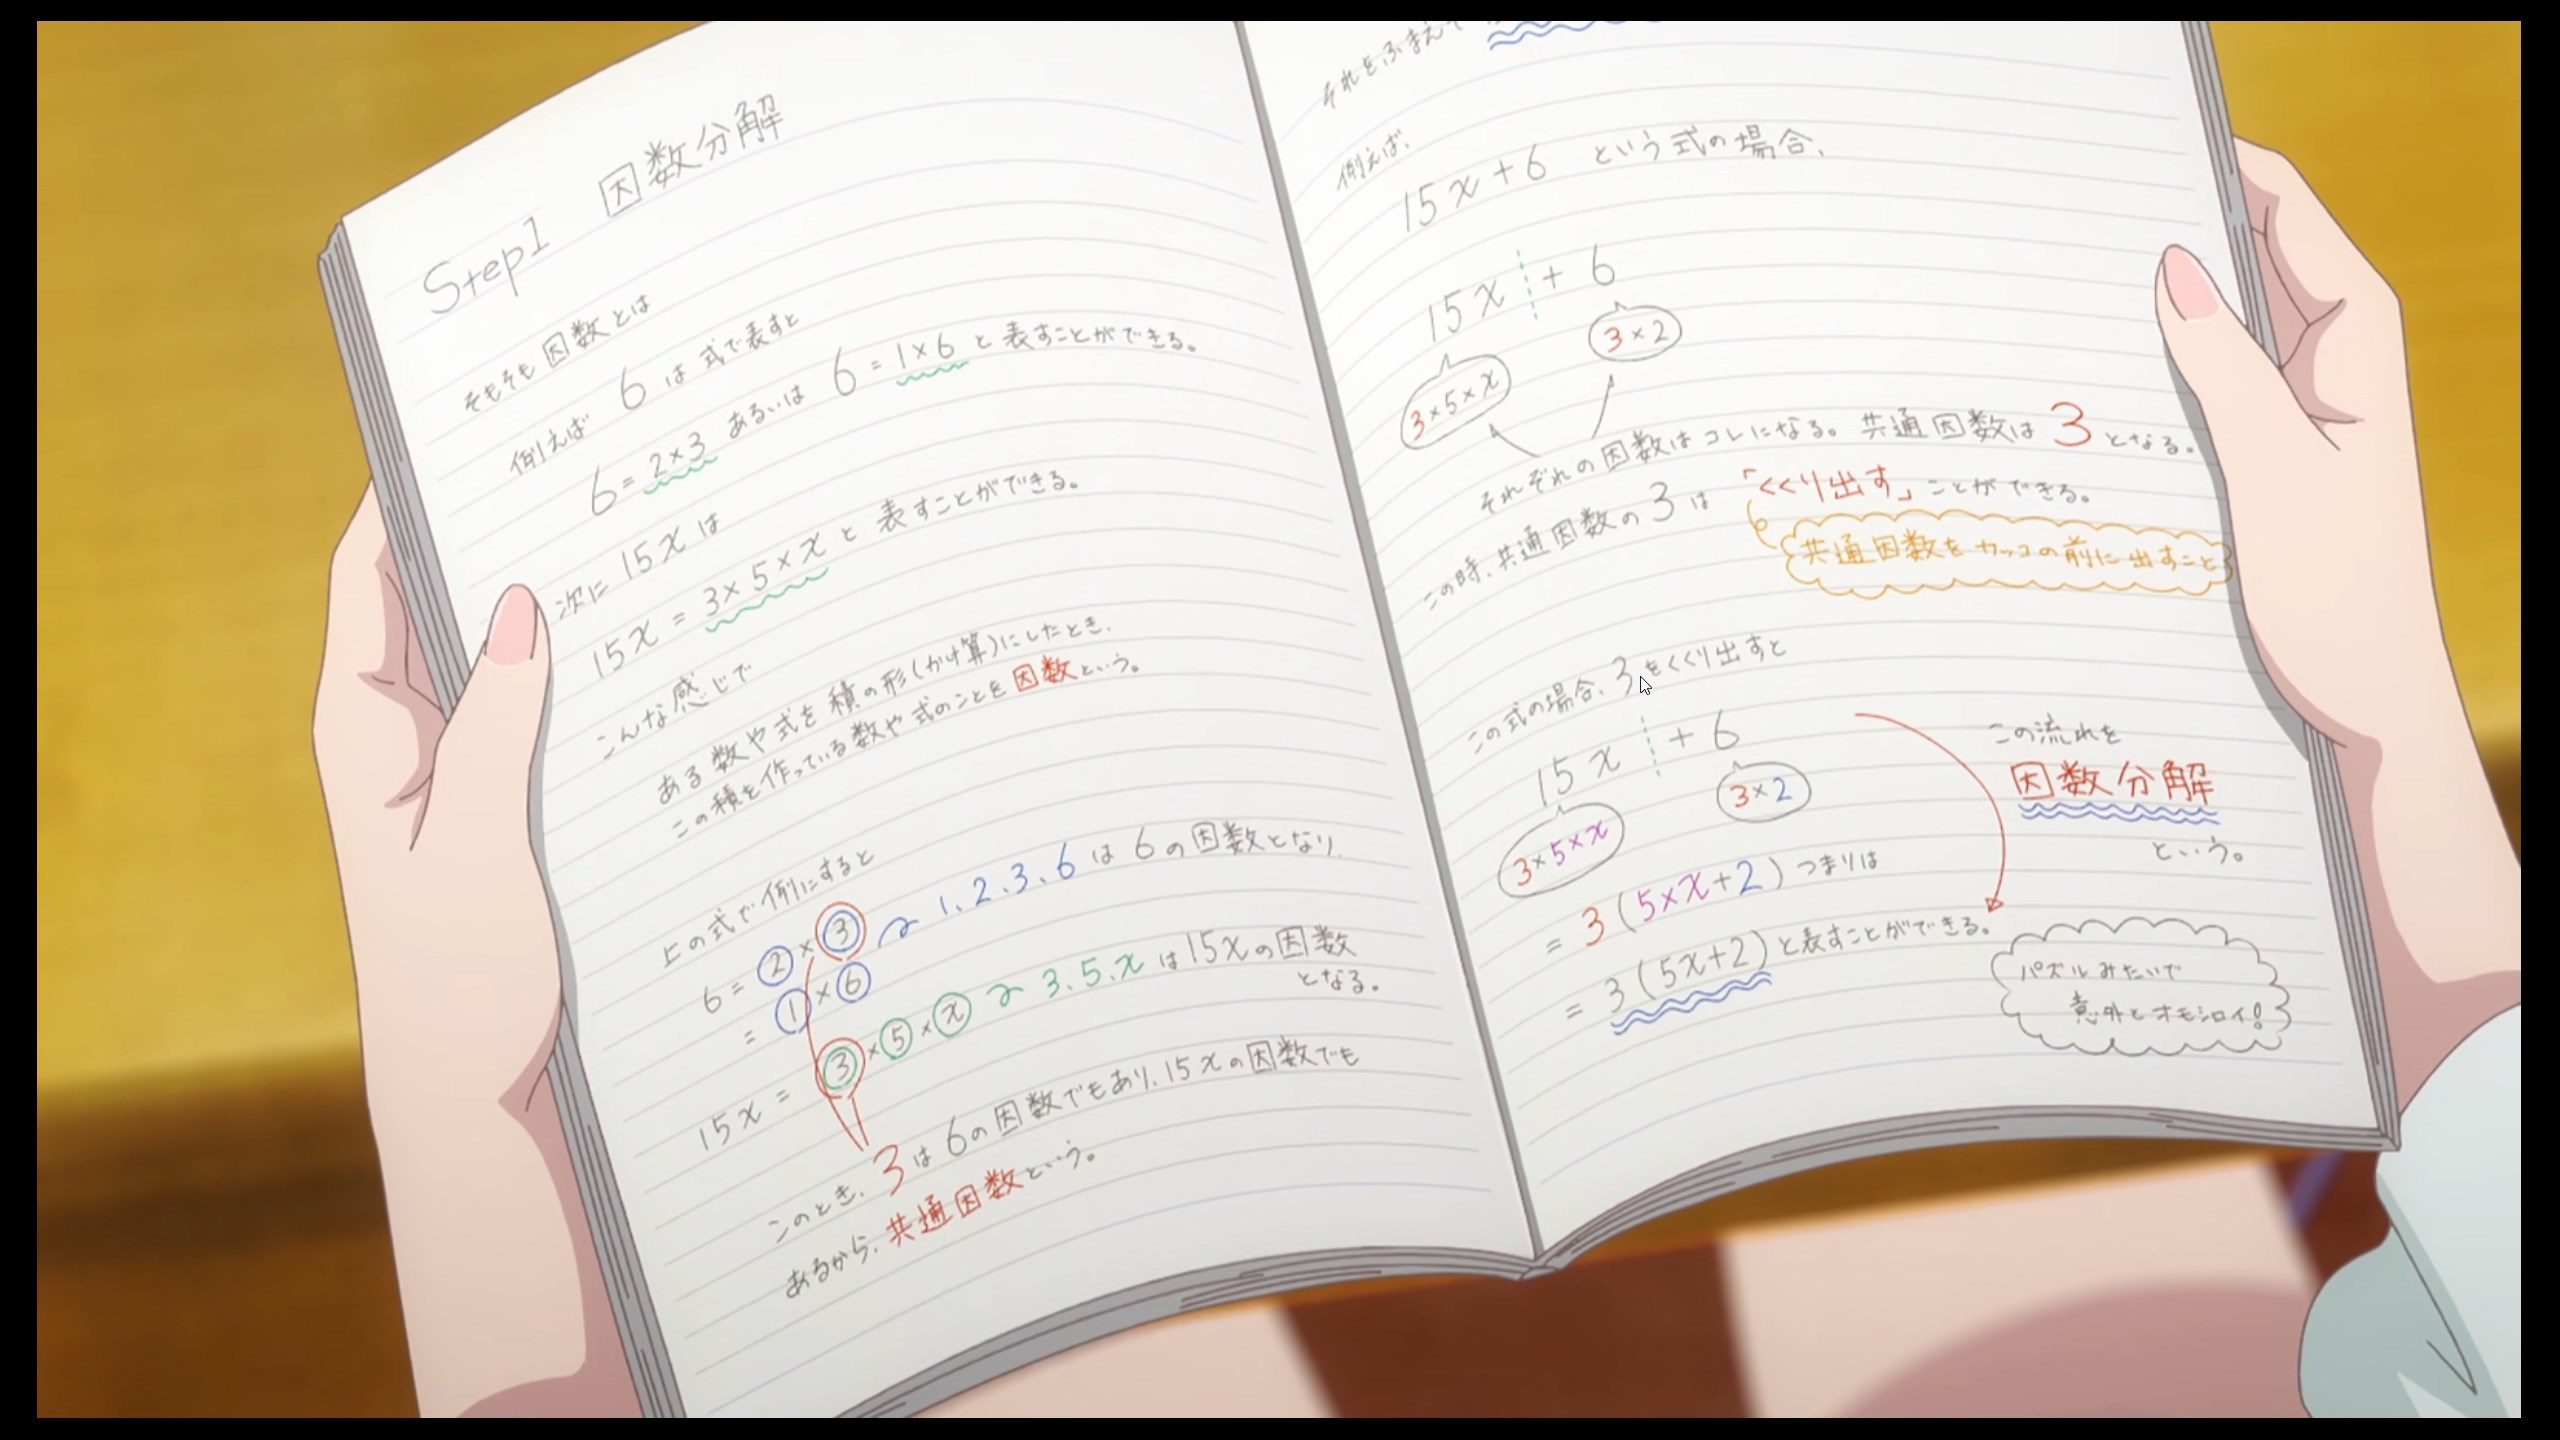 Step1 因数分解
そもそも因数とは
例えば 6 は 式で表すと
6=2×3 あるいは 6=1×6 と 表すことができる。
次に 15x は
15x = 3×5×x と 表すことができる。
こんな感じで
ある数や式を積の形(かけ算)にしたとき、
この積を作っている数や式のことを因数という。
上の式で例にすると
6 = ②×③ 〜 1、2、3、6 は 6の因数となり、
= ①×⑥
15x = ③×⑤×ⓧ 〜 3、5、x は 15xの因数
となる。
このとき、3は 6の因数でもあり、15xの因数でも
あるから、共通因数という。
それをふまえて
例えば、
15x+6 という式の場合、
15x + 6
3×5×x
3×2
それぞれの因数はコレになる。共通因数は 3 となる。
この時、共通因数の3は 「くくり出す」ことができる。
共通因数をカッコの前に出すこと
この式の場合、3をくくり出すと
15x + 6
3×5×x
3×2
= 3(5×x+2) つまりは
= 3(5x+2) と表すことができる。
この流れを
因数分解
という。
パズルみたいで
意外とオモシロイ!